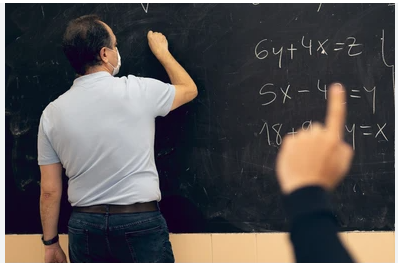 6y+4x=z
5x-4 =y
18+ y=x